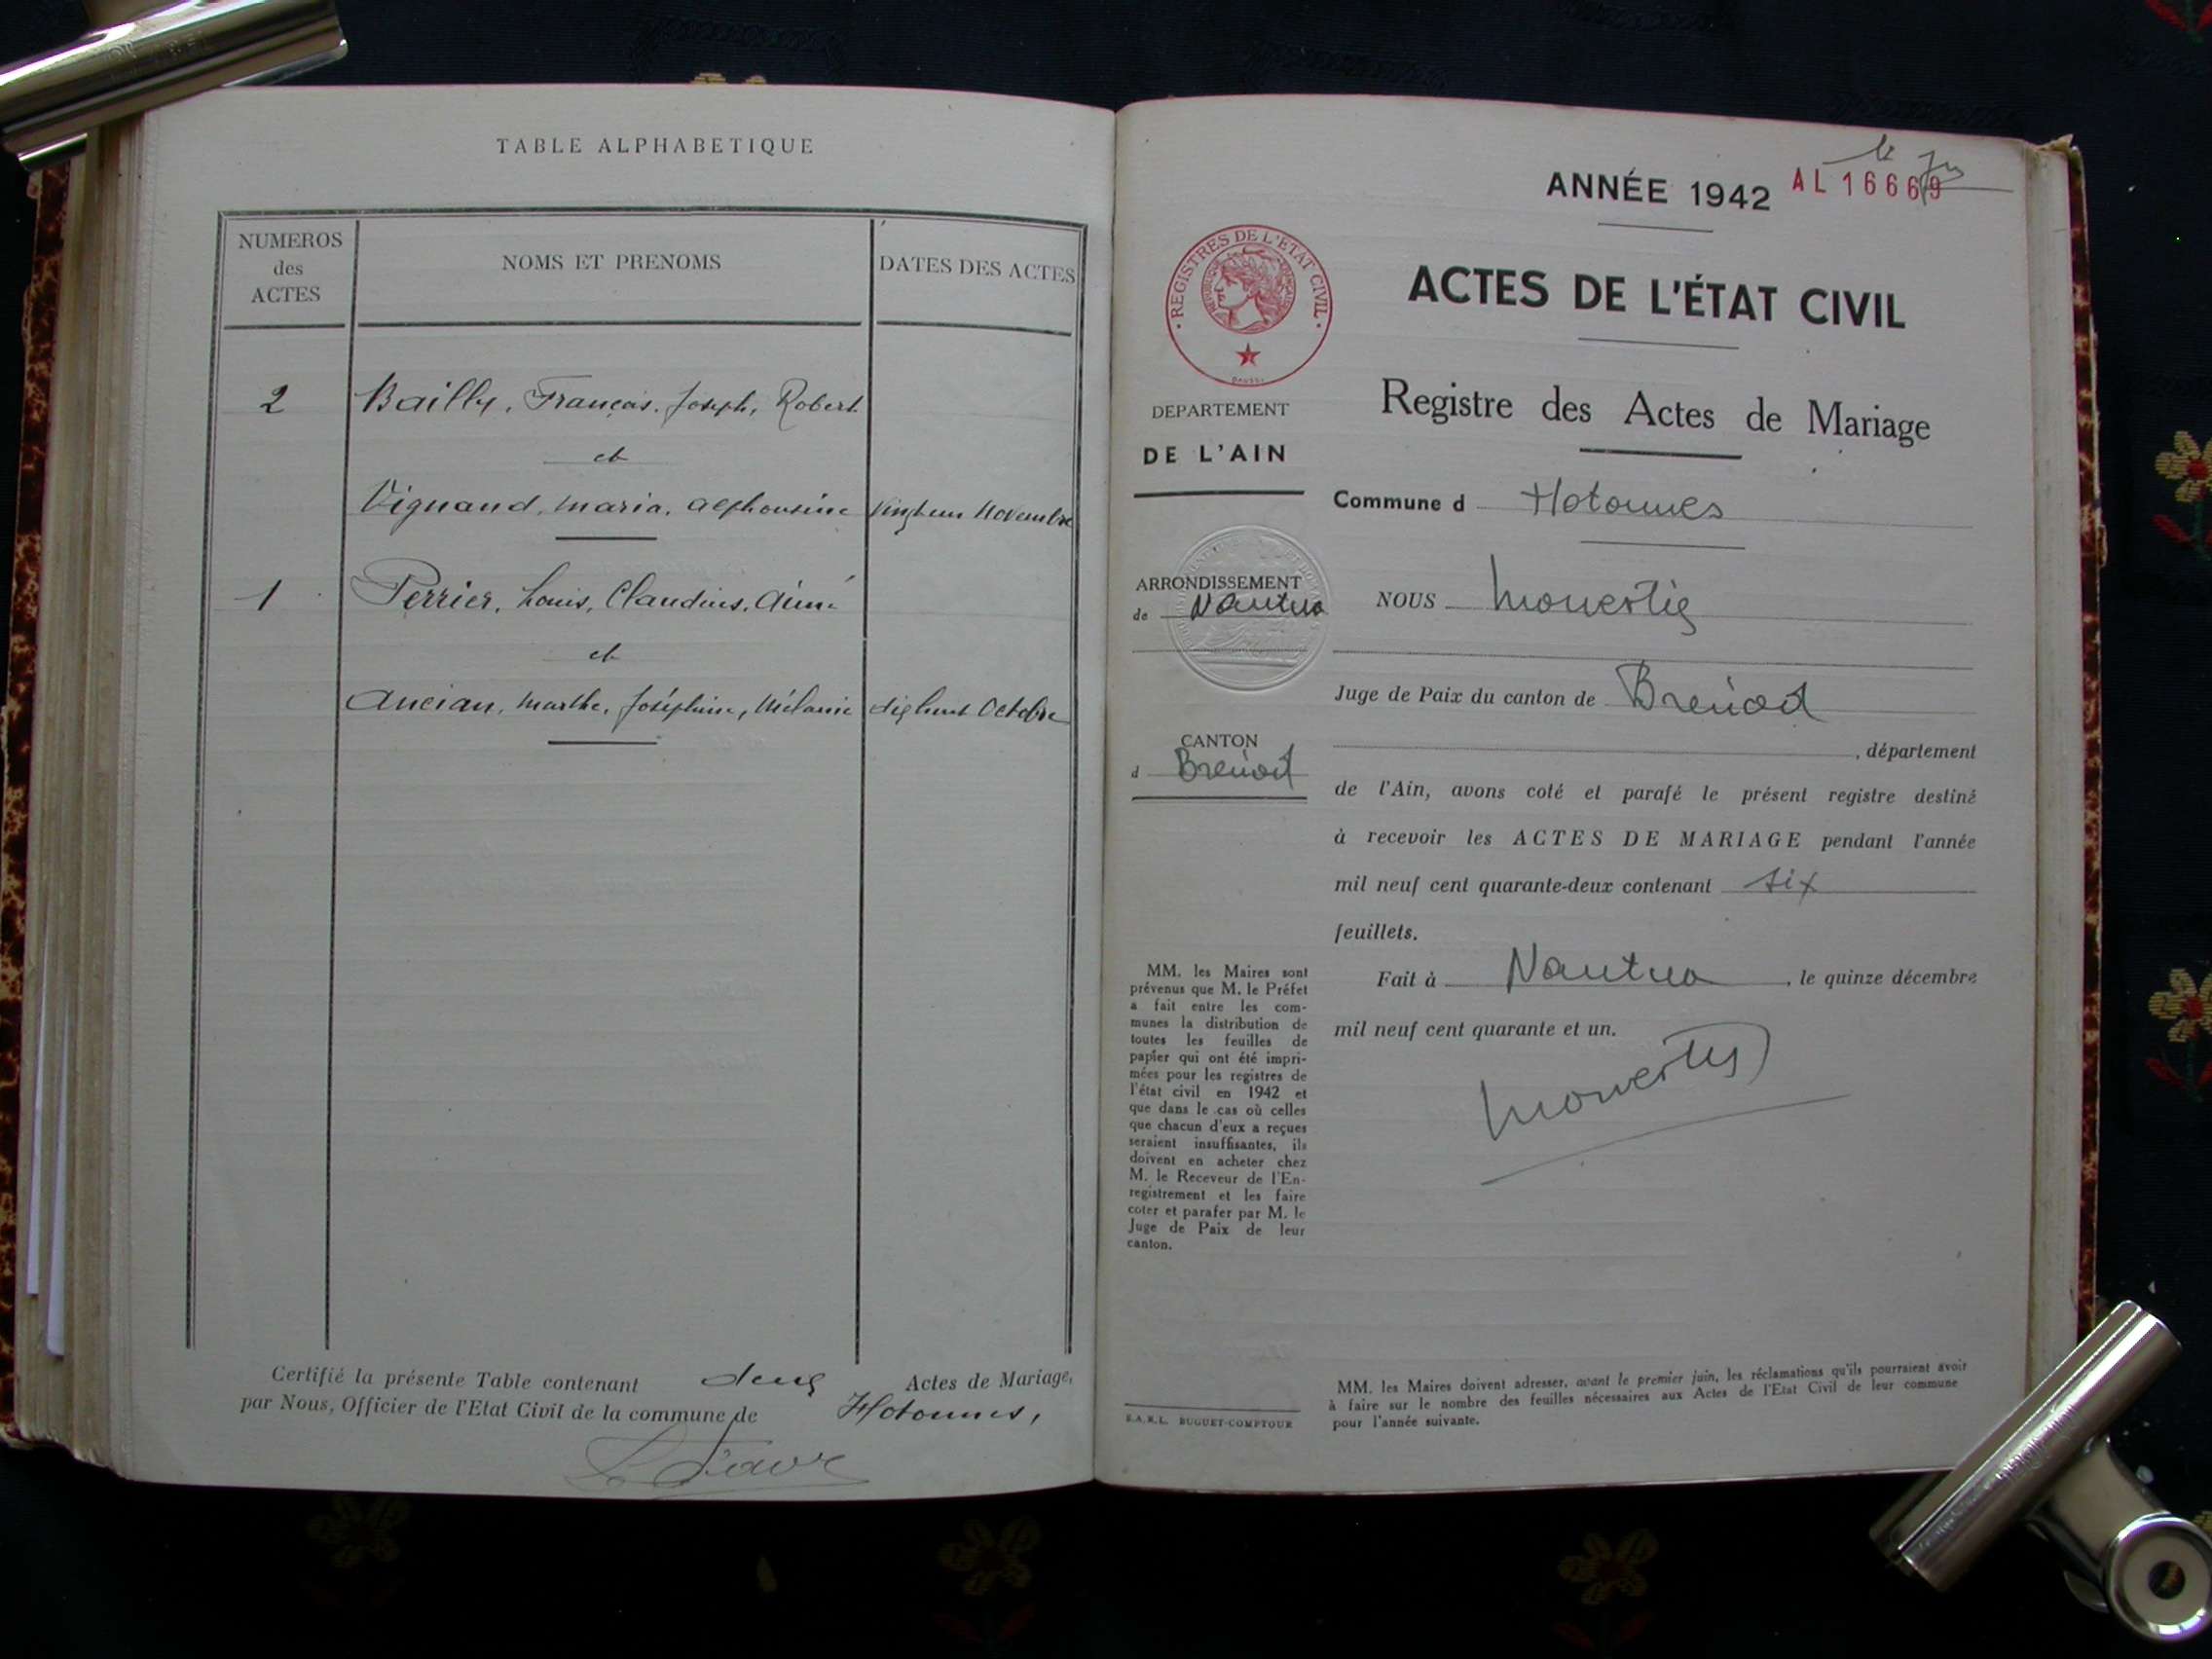 TABLE ALPHABETIQUE
NUMEROS
des
ACTES
NOMS ET PRENOMS
DATES DES ACTES
2
Bailly, François, Joseph, Robert
et
Vignand, Maria, Alphonsine
Vingt un Novembre
1
Perrier, Louis, Claudius, Aimé
et
Ancian, Marthe, Joséphine, Mélanie
dix huit Octobre
Certifié la présente Table contenant deux Actes de Mariage,
par Nous, Officier de l'Etat Civil de la commune de Hotonnes,
Favre
ANNÉE 1942
AL 16669
REGISTRES DE L'ETAT CIVIL
REPUBLIQUE FRANÇAISE
ACTES DE L'ÉTAT CIVIL
Registre des Actes de Mariage
DEPARTEMENT
DE L'AIN
Commune d Hotonnes
ARRONDISSEMENT
de Nantua
NOUS Monestié
Juge de Paix du canton de Brénod
CANTON
d Brénod
, département
de l'Ain, avons coté et parafé le présent registre destiné
à recevoir les ACTES DE MARIAGE pendant l'année
mil neuf cent quarante-deux contenant six
feuillets.
Fait à Nantua, le quinze décembre
mil neuf cent quarante et un.
MM. les Maires sont
prévenus que M. le Préfet
a fait entre les com-
munes la distribution de
toutes les feuilles de
papier qui ont été impri-
mées pour les registres de
l'état civil en 1942 et
que dans le cas où celles
que chacun d'eux a reçues
seraient insuffisantes, ils
doivent en acheter chez
M. le Receveur de l'En-
registrement et les faire
coter et parafer par M. le
Juge de Paix de leur
canton.
S.A.R.L. BUGUET-COMPTOUR
MM. les Maires doivent adresser, avant le premier juin, les réclamations qu'ils pourraient avoir
à faire sur le nombre des feuilles nécessaires aux Actes de l'Etat Civil de leur commune
pour l'année suivante.